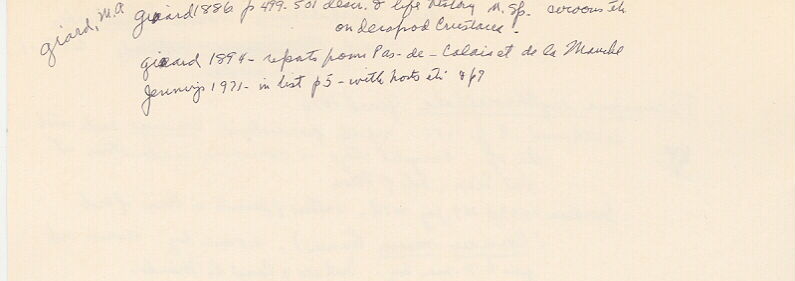 Giard, M.A
Giard 1886 p 499-501 descr. & life history n. sp. cocoons etc
on decapod Crustacea.
Giard 1894 - reports from Pas-de-Calais et de la Manche
Jennings 1971 - in list p5 - with hosts etc & p7